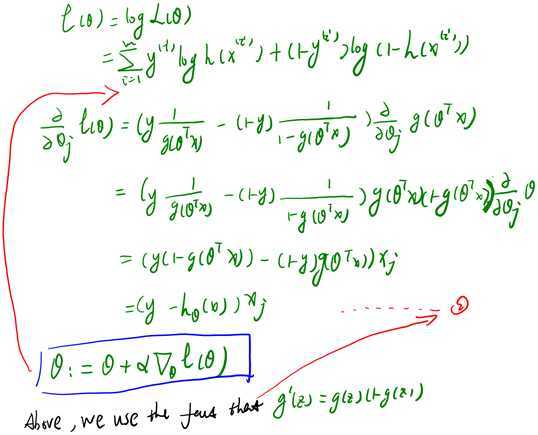 ℓ(θ) = log L(θ)
= Σ_{i=1}^{m} y^{(i)} log h(x^{(i)}) + (1-y^{(i)}) log (1-h(x^{(i)}))
∂/∂θ_j ℓ(θ) = (y 1/g(θ^T x) - (1-y) 1/(1-g(θ^T x))) ∂/∂θ_j g(θ^T x)
= (y 1/g(θ^T x) - (1-y) 1/(1-g(θ^T x))) g(θ^T x)(1-g(θ^T x)) ∂/∂θ_j θ
= (y(1-g(θ^T x)) - (1-y)g(θ^T x)) x_j
= (y - h_θ(x)) x_j ....... ②
θ := θ + α∇_θ ℓ(θ)
Above, we use the that g'(z) = g(z)(1-g(z))